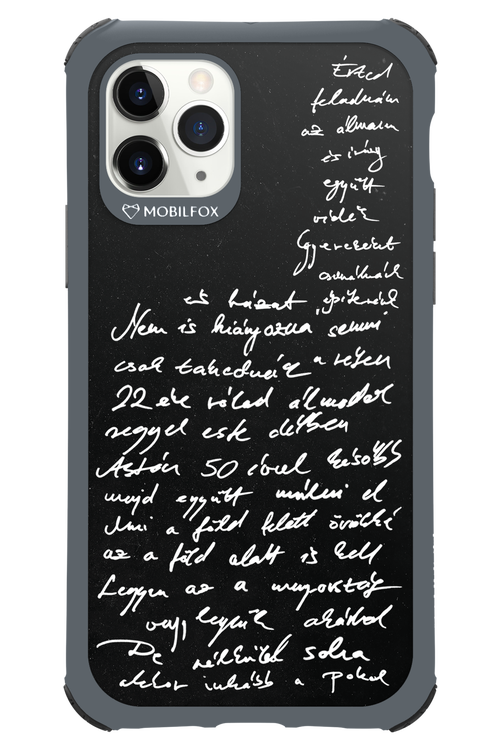 MOBILFOX
Érted
feladnám
az álmaim
és így
együtt
vidék
Gyereket
csinálnánk
és házat építenénk
Nem is hiányozna semmi
csak a réten
22 éve rólad álmodok
reggel este délben
Aztán 50 évvel később
majd együtt múlni el
Ami a föld felett örökké
az a föld alatt is kell
Legyen az a mennyország
vagy legyünk akárhol
De nélküled soha
akkor inkább a pokol